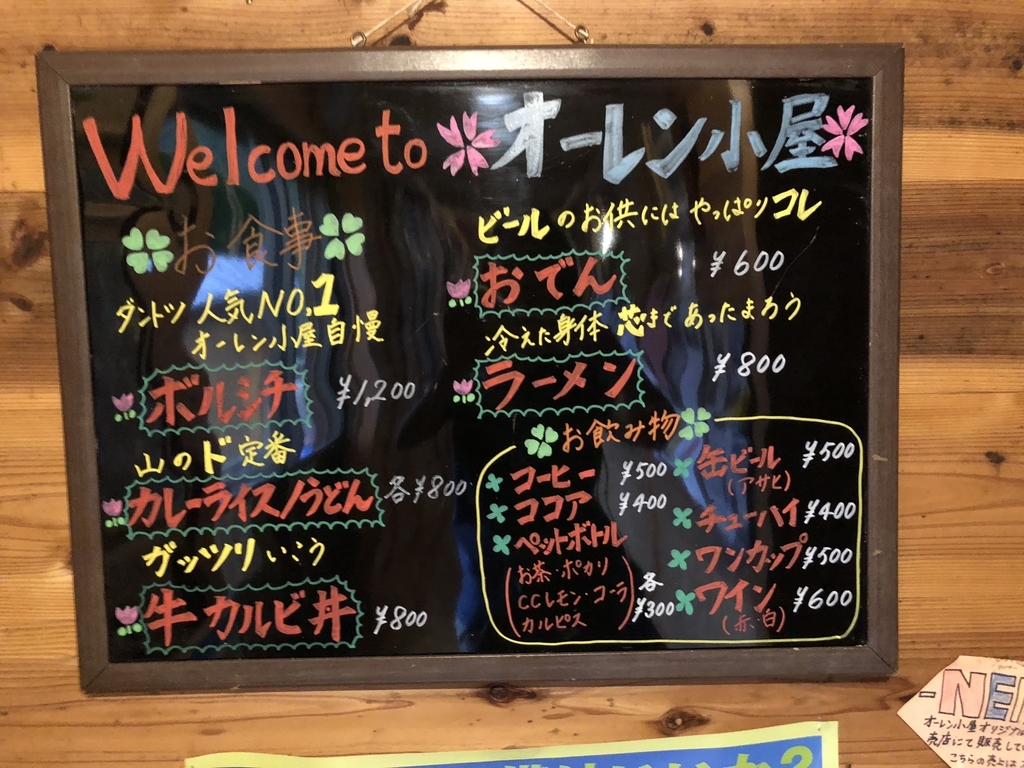 Welcome to オーレン小屋
お食事
ダントツ 人気NO,1
オーレン小屋自慢
ボルシチ ¥1,200
山のド定番
カレーライス/うどん 各¥800
ガッツリいこう
牛カルビ丼 ¥800
ビールのお供にはやっぱりコレ
おでん ¥600
冷えた身体 芯まであったまろう
ラーメン ¥800
お飲み物
コーヒー ¥500
ココア ¥400
ペットボトル
(お茶・ポカリ
CCレモン・コーラ
カルピス) 各¥300
缶ビール ¥500
(アサヒ)
チューハイ ¥400
ワンカップ ¥500
ワイン ¥600
(赤・白)
-NE
オーレン小屋オリジナル
売店にて販売して
こちらの売上は